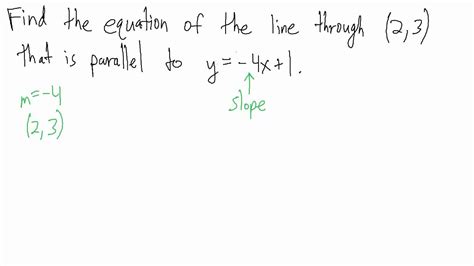 Find the equation of the line through (2,3)
that is parallel to y=-4x+1.
m=-4
slope
(2,3)